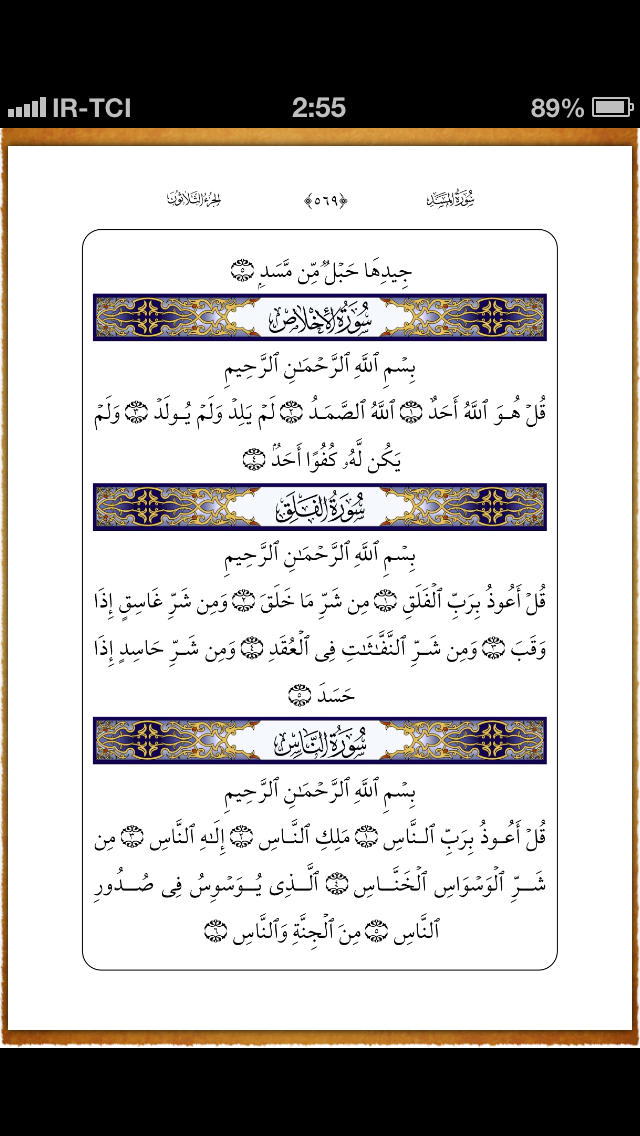 IR-TCI 2:55 89%
سُورَةُ المَسَد ﴿٥٦٩﴾ الجزءُ الثَّلَاثُون
جِيدِهَا حَبْلٌ مِّن مَّسَدٍ ۝٥
سُورَةُ الإِخْلَاصِ
بِسْمِ ٱللَّهِ ٱلرَّحْمَـٰنِ ٱلرَّحِيمِ
قُلْ هُوَ ٱللَّهُ أَحَدٌ ۝١ ٱللَّهُ ٱلصَّمَدُ ۝٢ لَمْ يَلِدْ وَلَمْ يُولَدْ ۝٣ وَلَمْ
يَكُن لَّهُۥ كُفُوًا أَحَدٌۢ ۝٤
سُورَةُ الفَلَقِ
بِسْمِ ٱللَّهِ ٱلرَّحْمَـٰنِ ٱلرَّحِيمِ
قُلْ أَعُوذُ بِرَبِّ ٱلْفَلَقِ ۝١ مِن شَرِّ مَا خَلَقَ ۝٢ وَمِن شَرِّ غَاسِقٍ إِذَا
وَقَبَ ۝٣ وَمِن شَرِّ ٱلنَّفَّـٰثَـٰتِ فِى ٱلْعُقَدِ ۝٤ وَمِن شَرِّ حَاسِدٍ إِذَا
حَسَدَ ۝٥
سُورَةُ النَّاسِ
بِسْمِ ٱللَّهِ ٱلرَّحْمَـٰنِ ٱلرَّحِيمِ
قُلْ أَعُوذُ بِرَبِّ ٱلنَّاسِ ۝١ مَلِكِ ٱلنَّاسِ ۝٢ إِلَـٰهِ ٱلنَّاسِ ۝٣ مِن
شَرِّ ٱلْوَسْوَاسِ ٱلْخَنَّاسِ ۝٤ ٱلَّذِى يُوَسْوِسُ فِى صُدُورِ
ٱلنَّاسِ ۝٥ مِنَ ٱلْجِنَّةِ وَٱلنَّاسِ ۝٦